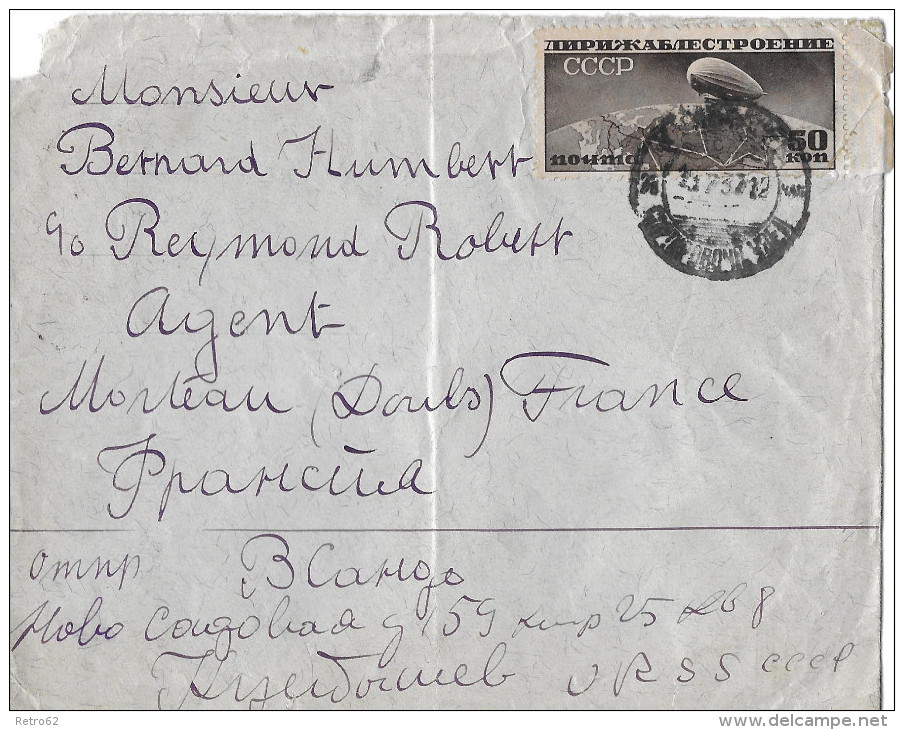 ДИРИЖАБЛЕСТРОЕНИЕ
СССР
почта
50
коп
Monsieur
Bernard Humbert
c/o Reymond Robert
Agent
Morteau (Doubs) France
Франция
отпр В Сандо
Ново Садовая д 159 кв 8
Куйбышев URSS СССР
Retro62
www.delcampe.net